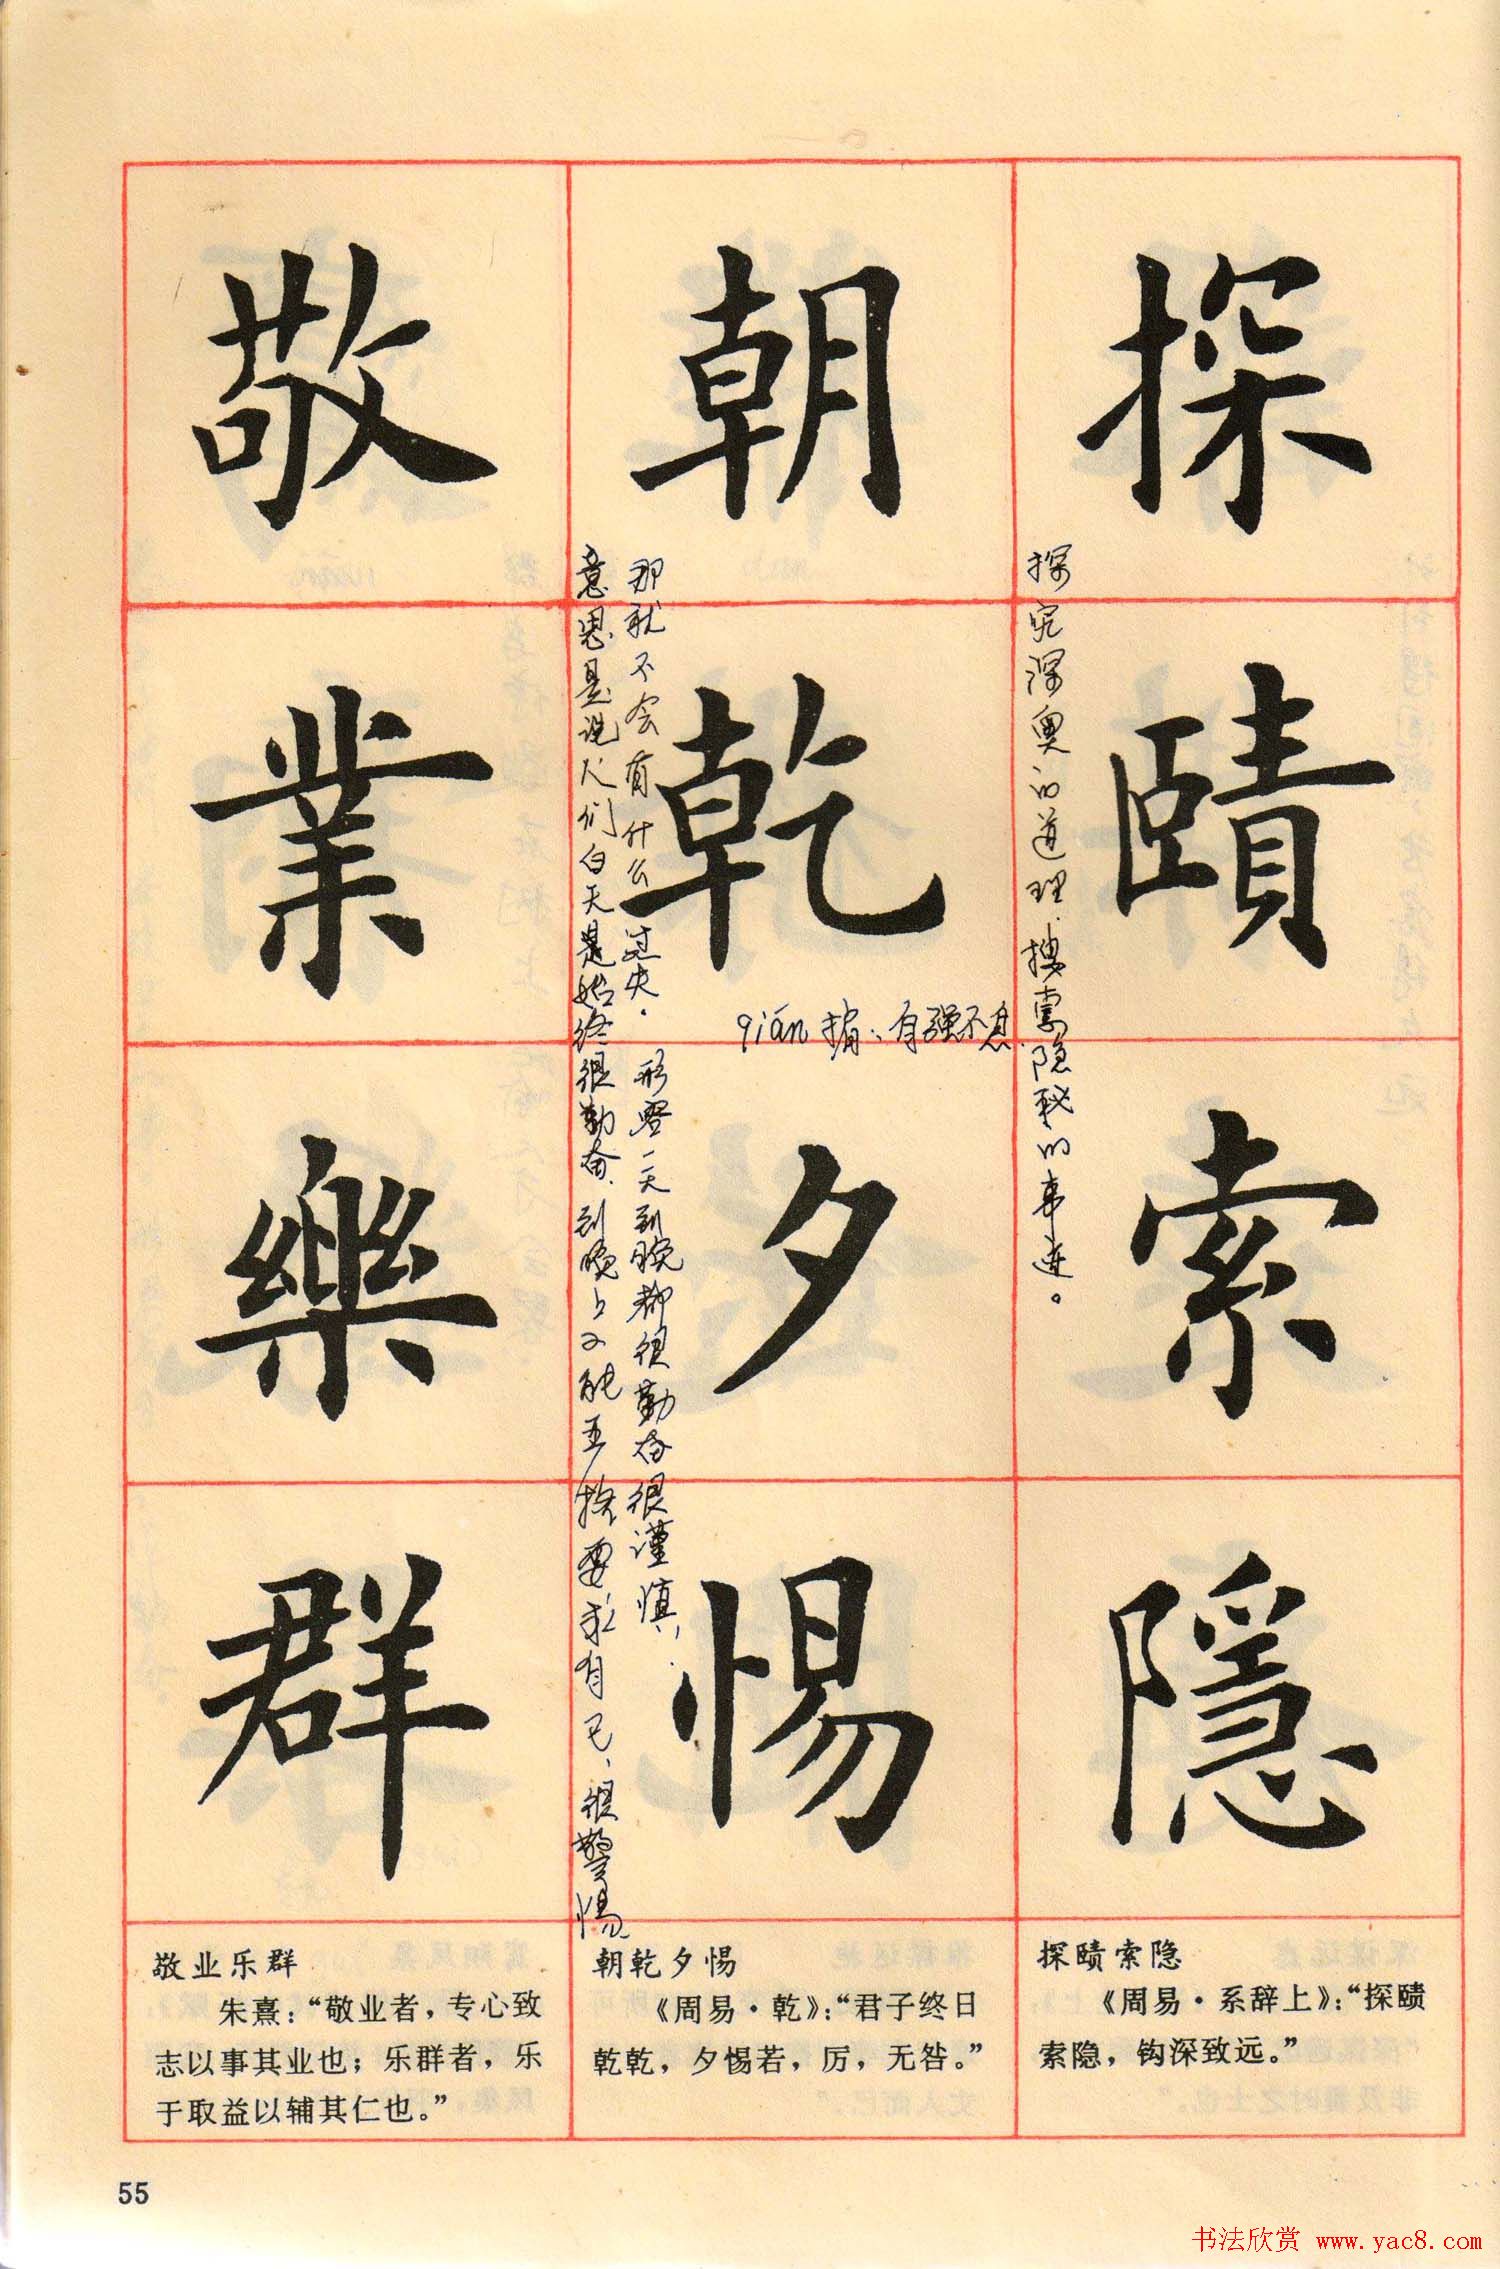 探賾索隱
朝乾夕惕
敬業樂群
探究深奥的道理.搜索隐秘的事迹。
qián 指：自强不息
意思是说人们白天是始终很勤奋、到晚上又能严格要求自己、很警惕
那就不会有什么过失。形容一天到晚都很勤奋很谨慎
探赜索隐
《周易·系辞上》：“探赜
索隐，钩深致远。”
朝乾夕惕
《周易·乾》：“君子终日
乾乾，夕惕若，厉，无咎。”
敬业乐群
朱熹：“敬业者，专心致
志以事其业也；乐群者，乐
于取益以辅其仁也。”
55
书法欣赏 www.yac8.com